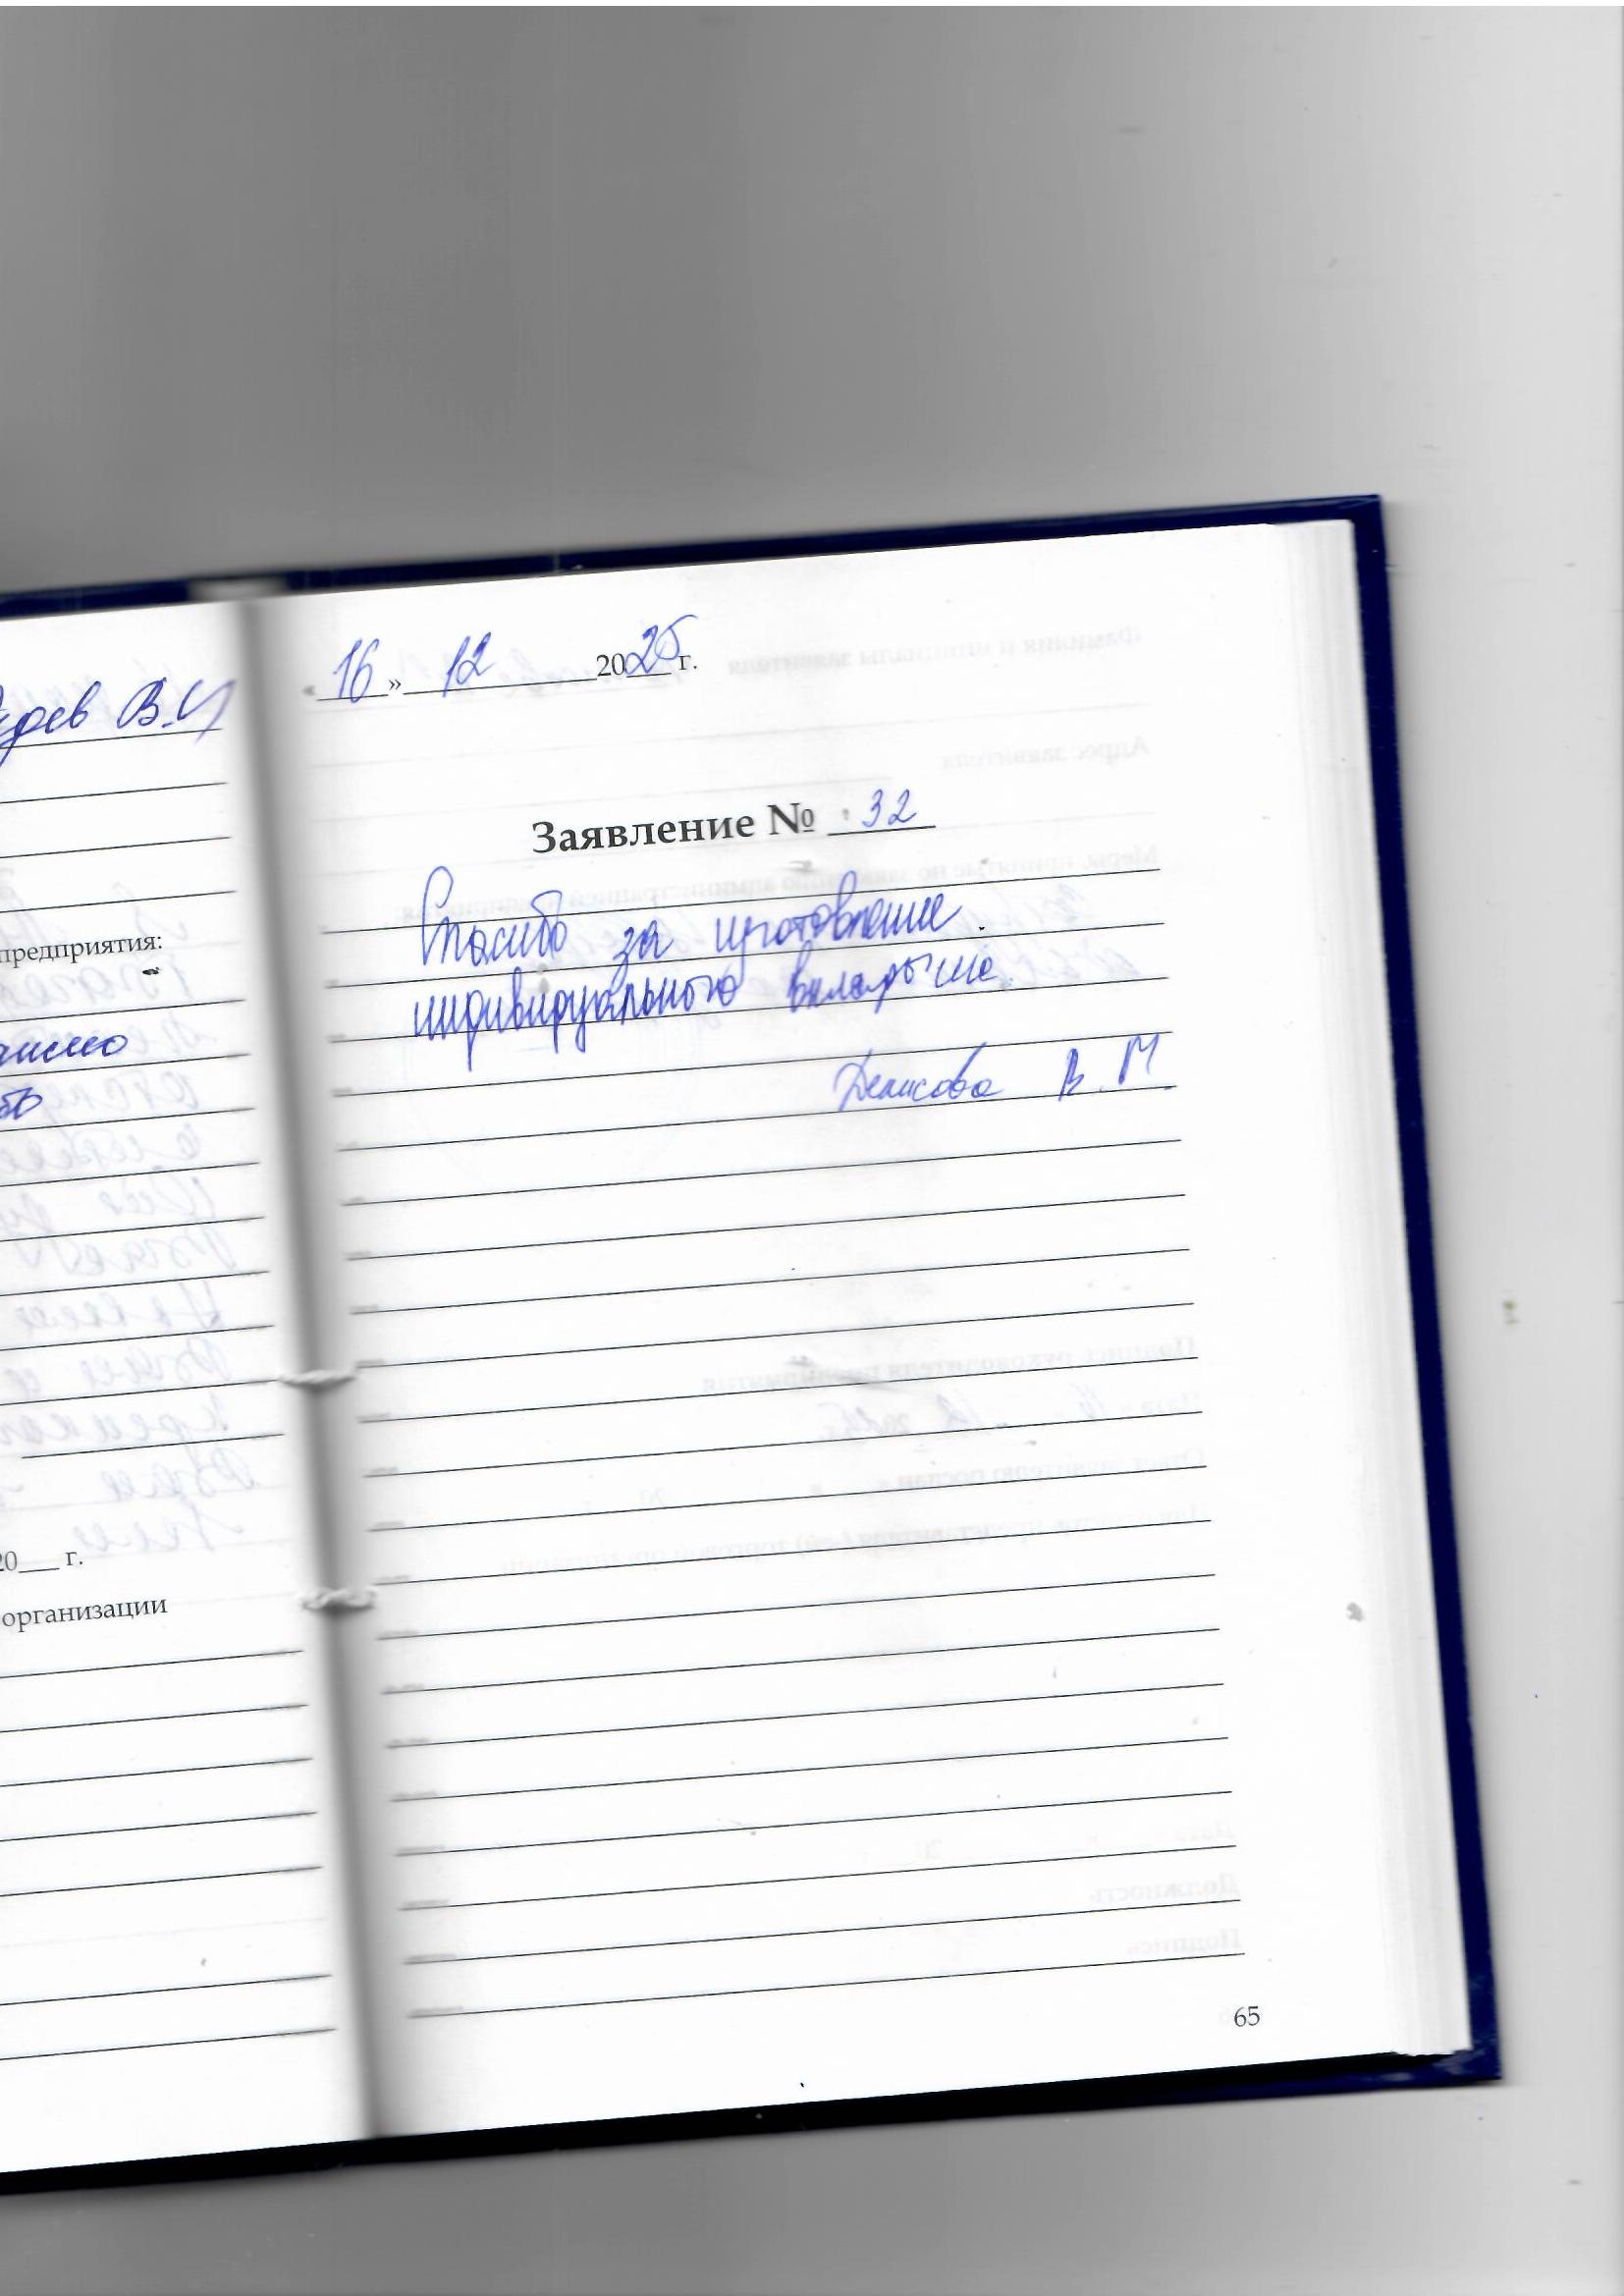 В.И
предприятия:
20___ г.
организации
«16» 12 2025 г.
Заявление № 32
Спасибо за изготовление
индивидуального вкладыша.
Денисова В. М.
65